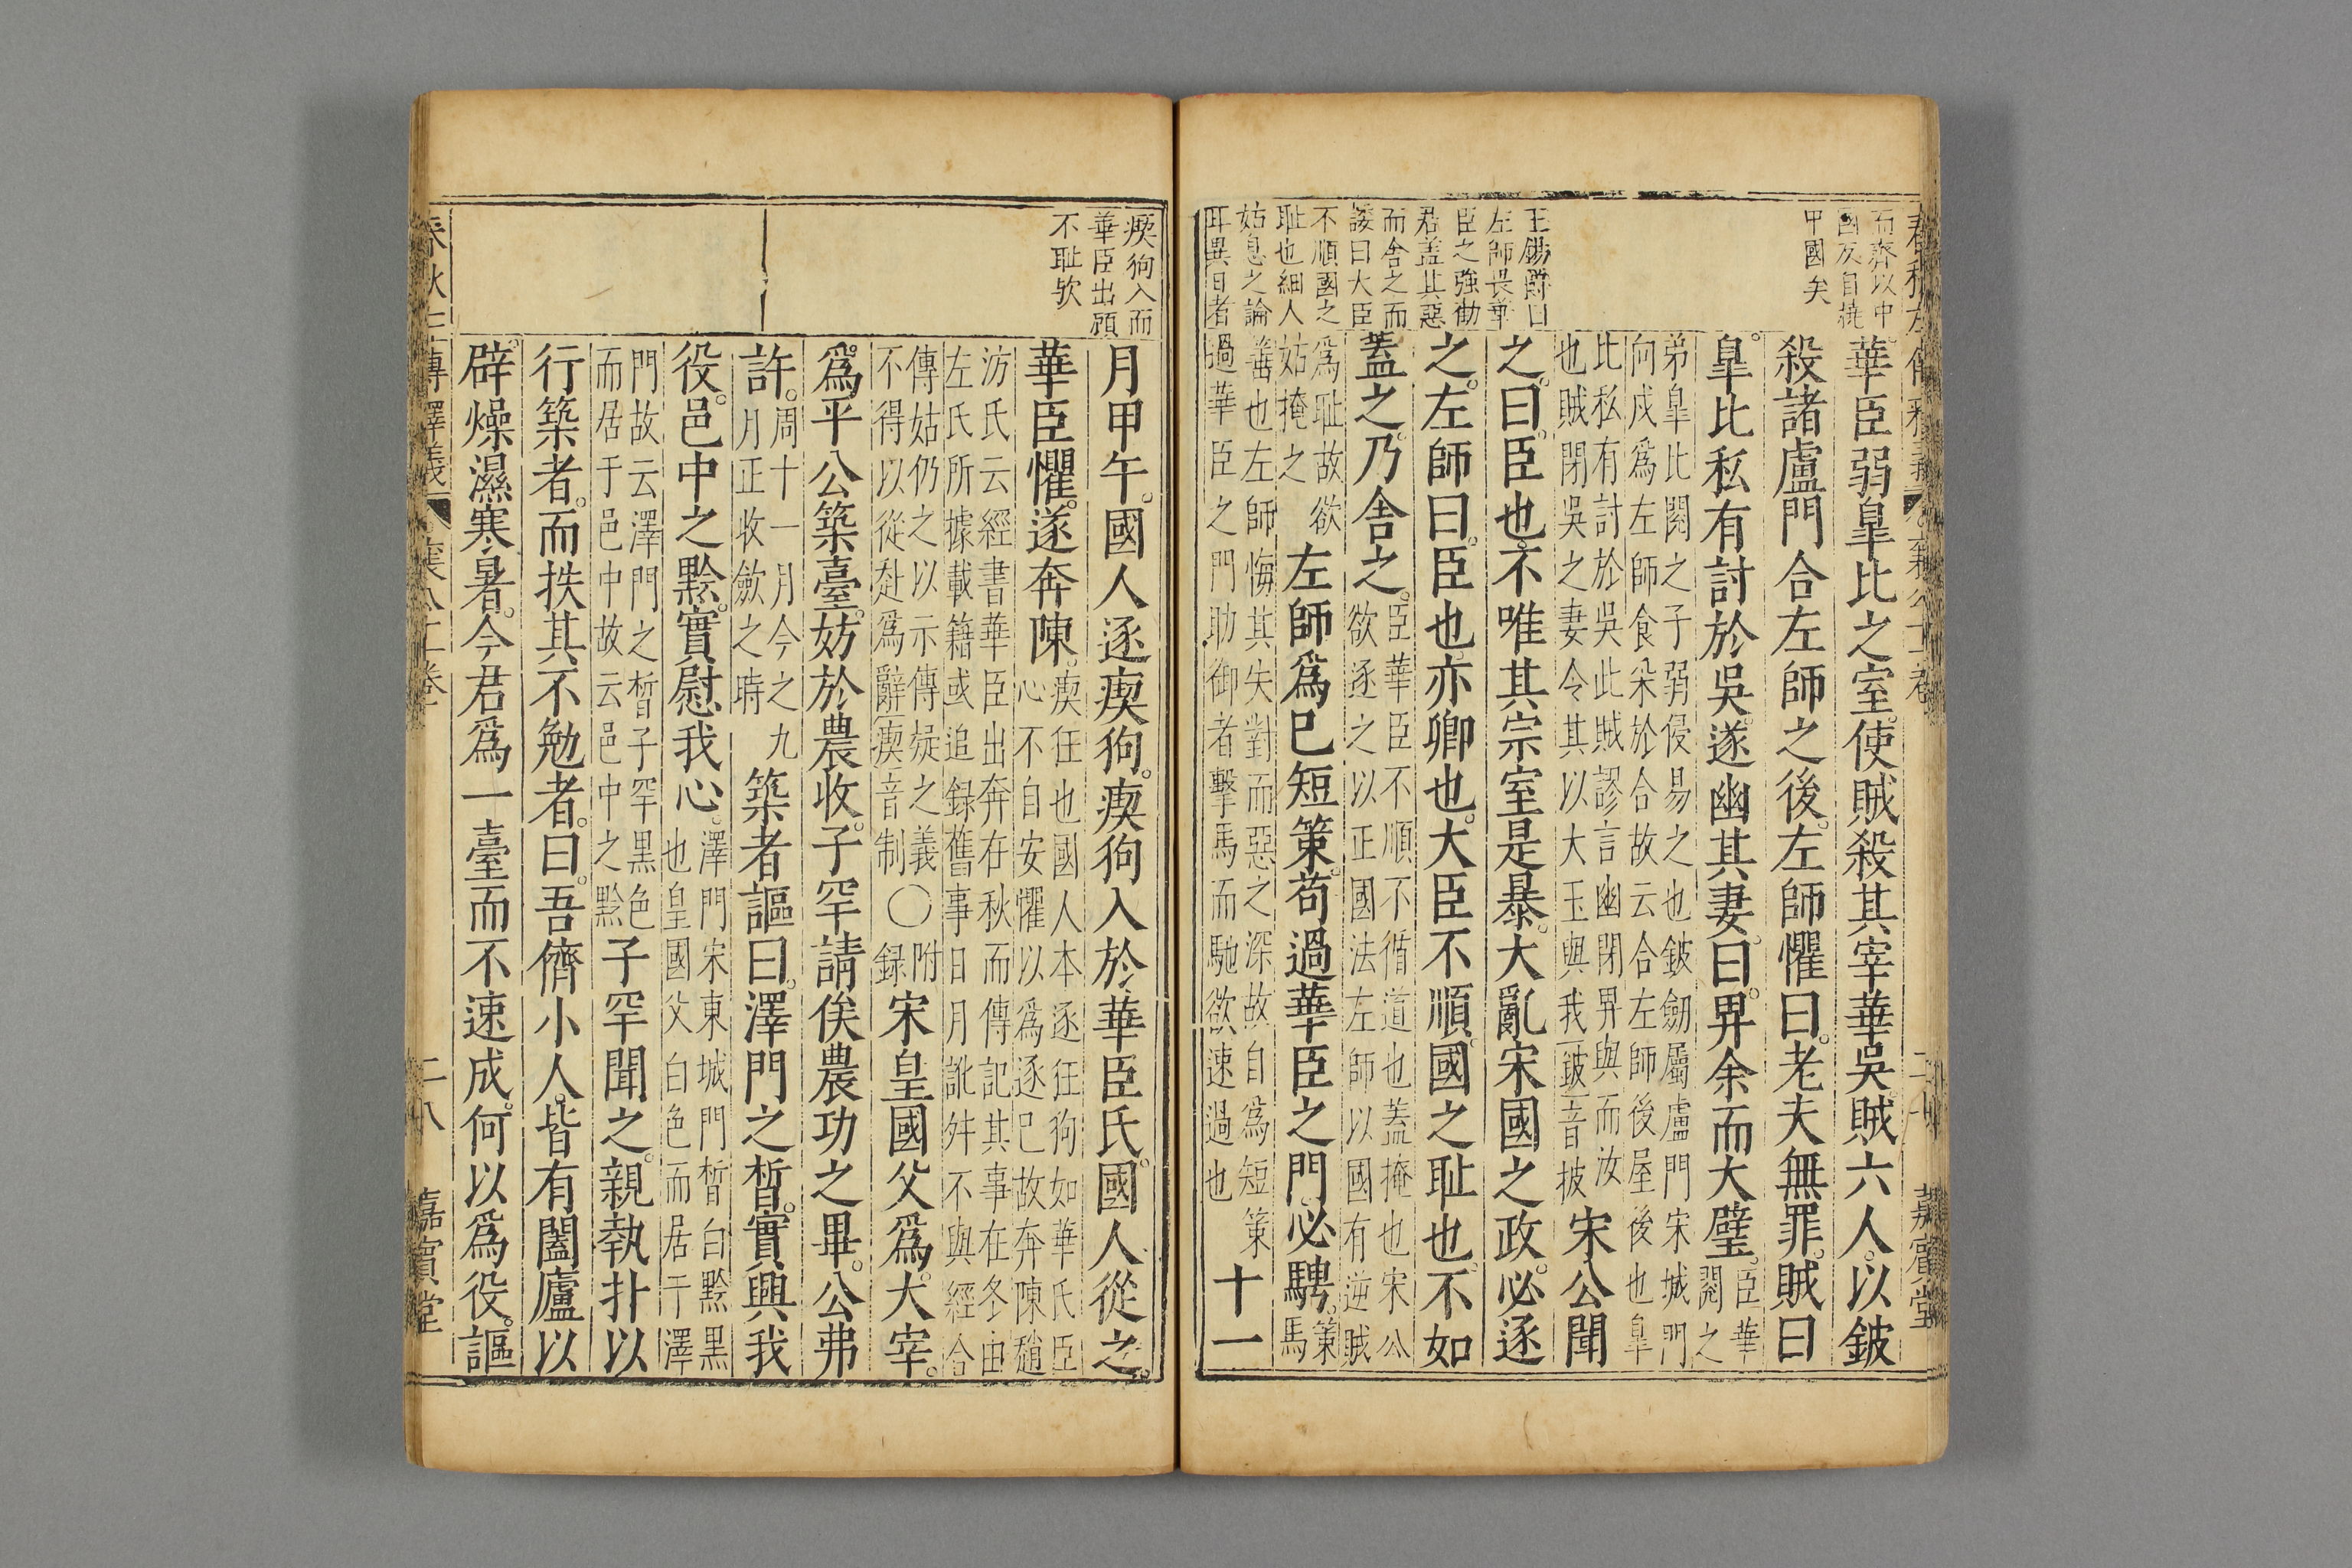 而齊以中
國反自撓
中國矣
王錫爵曰
左師畏華
臣之強勸
君蓋其惡
而舍之而
諉曰大臣
不順國之
耻也細人
姑息之論
耳異日者
華臣弱臯比之室使賊殺其宰華吳賊六人以鈹
殺諸盧門合左師之後左師懼曰老夫無罪賊曰
臯比私有討於吳遂幽其妻曰畀余而大璧
臣華
閱之
弟臯比閱之子弱侵易之也鈹劒屬盧門宋城門
向戌為左師食采於合故云合左師後屋後也臯
比私有討於吳此賊謬言幽閉畀與而汝
也賊閉吳之妻令其以大玉與我鈹音披
宋公聞
之曰臣也不唯其宗室是暴大亂宋國之政必逐
之左師曰臣也亦卿也大臣不順國之耻也不如
蓋之乃舍之
臣華臣不順不循道也蓋掩也宋公
欲逐之以正國法左師以國有逆賊
為耻故欲
姑掩之
左師為已短策苟過華臣之門必騁
策
馬
箠也左師悔其失對而惡之深故自為短策
過華臣之門助御者擊馬而馳欲速過也
十一
嘉賓堂
瘈狗入而
華臣出頋
不耻欤
月甲午國人逐瘈狗瘈狗入於華臣氏國人從之
華臣懼遂奔陳
瘈狂也國人本逐狂狗如華氏臣
心不自安懼以為逐已故奔陳趙
汸氏云經書華臣出奔在秋而傳記其事在冬由
左氏所據載籍或追録舊事日月訛舛不與經合
傳姑仍之以示傳疑之義
不得以從赴為辭瘈音制
○
附
録
宋皇國父為大宰
為平公築臺妨於農收子罕請俟農功之畢公弗
許
周十一月今之九
月正收斂之時
築者謳曰澤門之晳實興我
役邑中之黔實慰我心
澤門宋東城門晳白黔黑
也皇國父白色而居于澤
門故云澤門之晳子罕黒色
而居于邑中故云邑中之黔
子罕聞之親執扑以
行築者而抶其不勉者曰吾儕小人皆有闔廬以
辟燥濕寒暑今君為一臺而不速成何以為役謳
二八
嘉賓堂